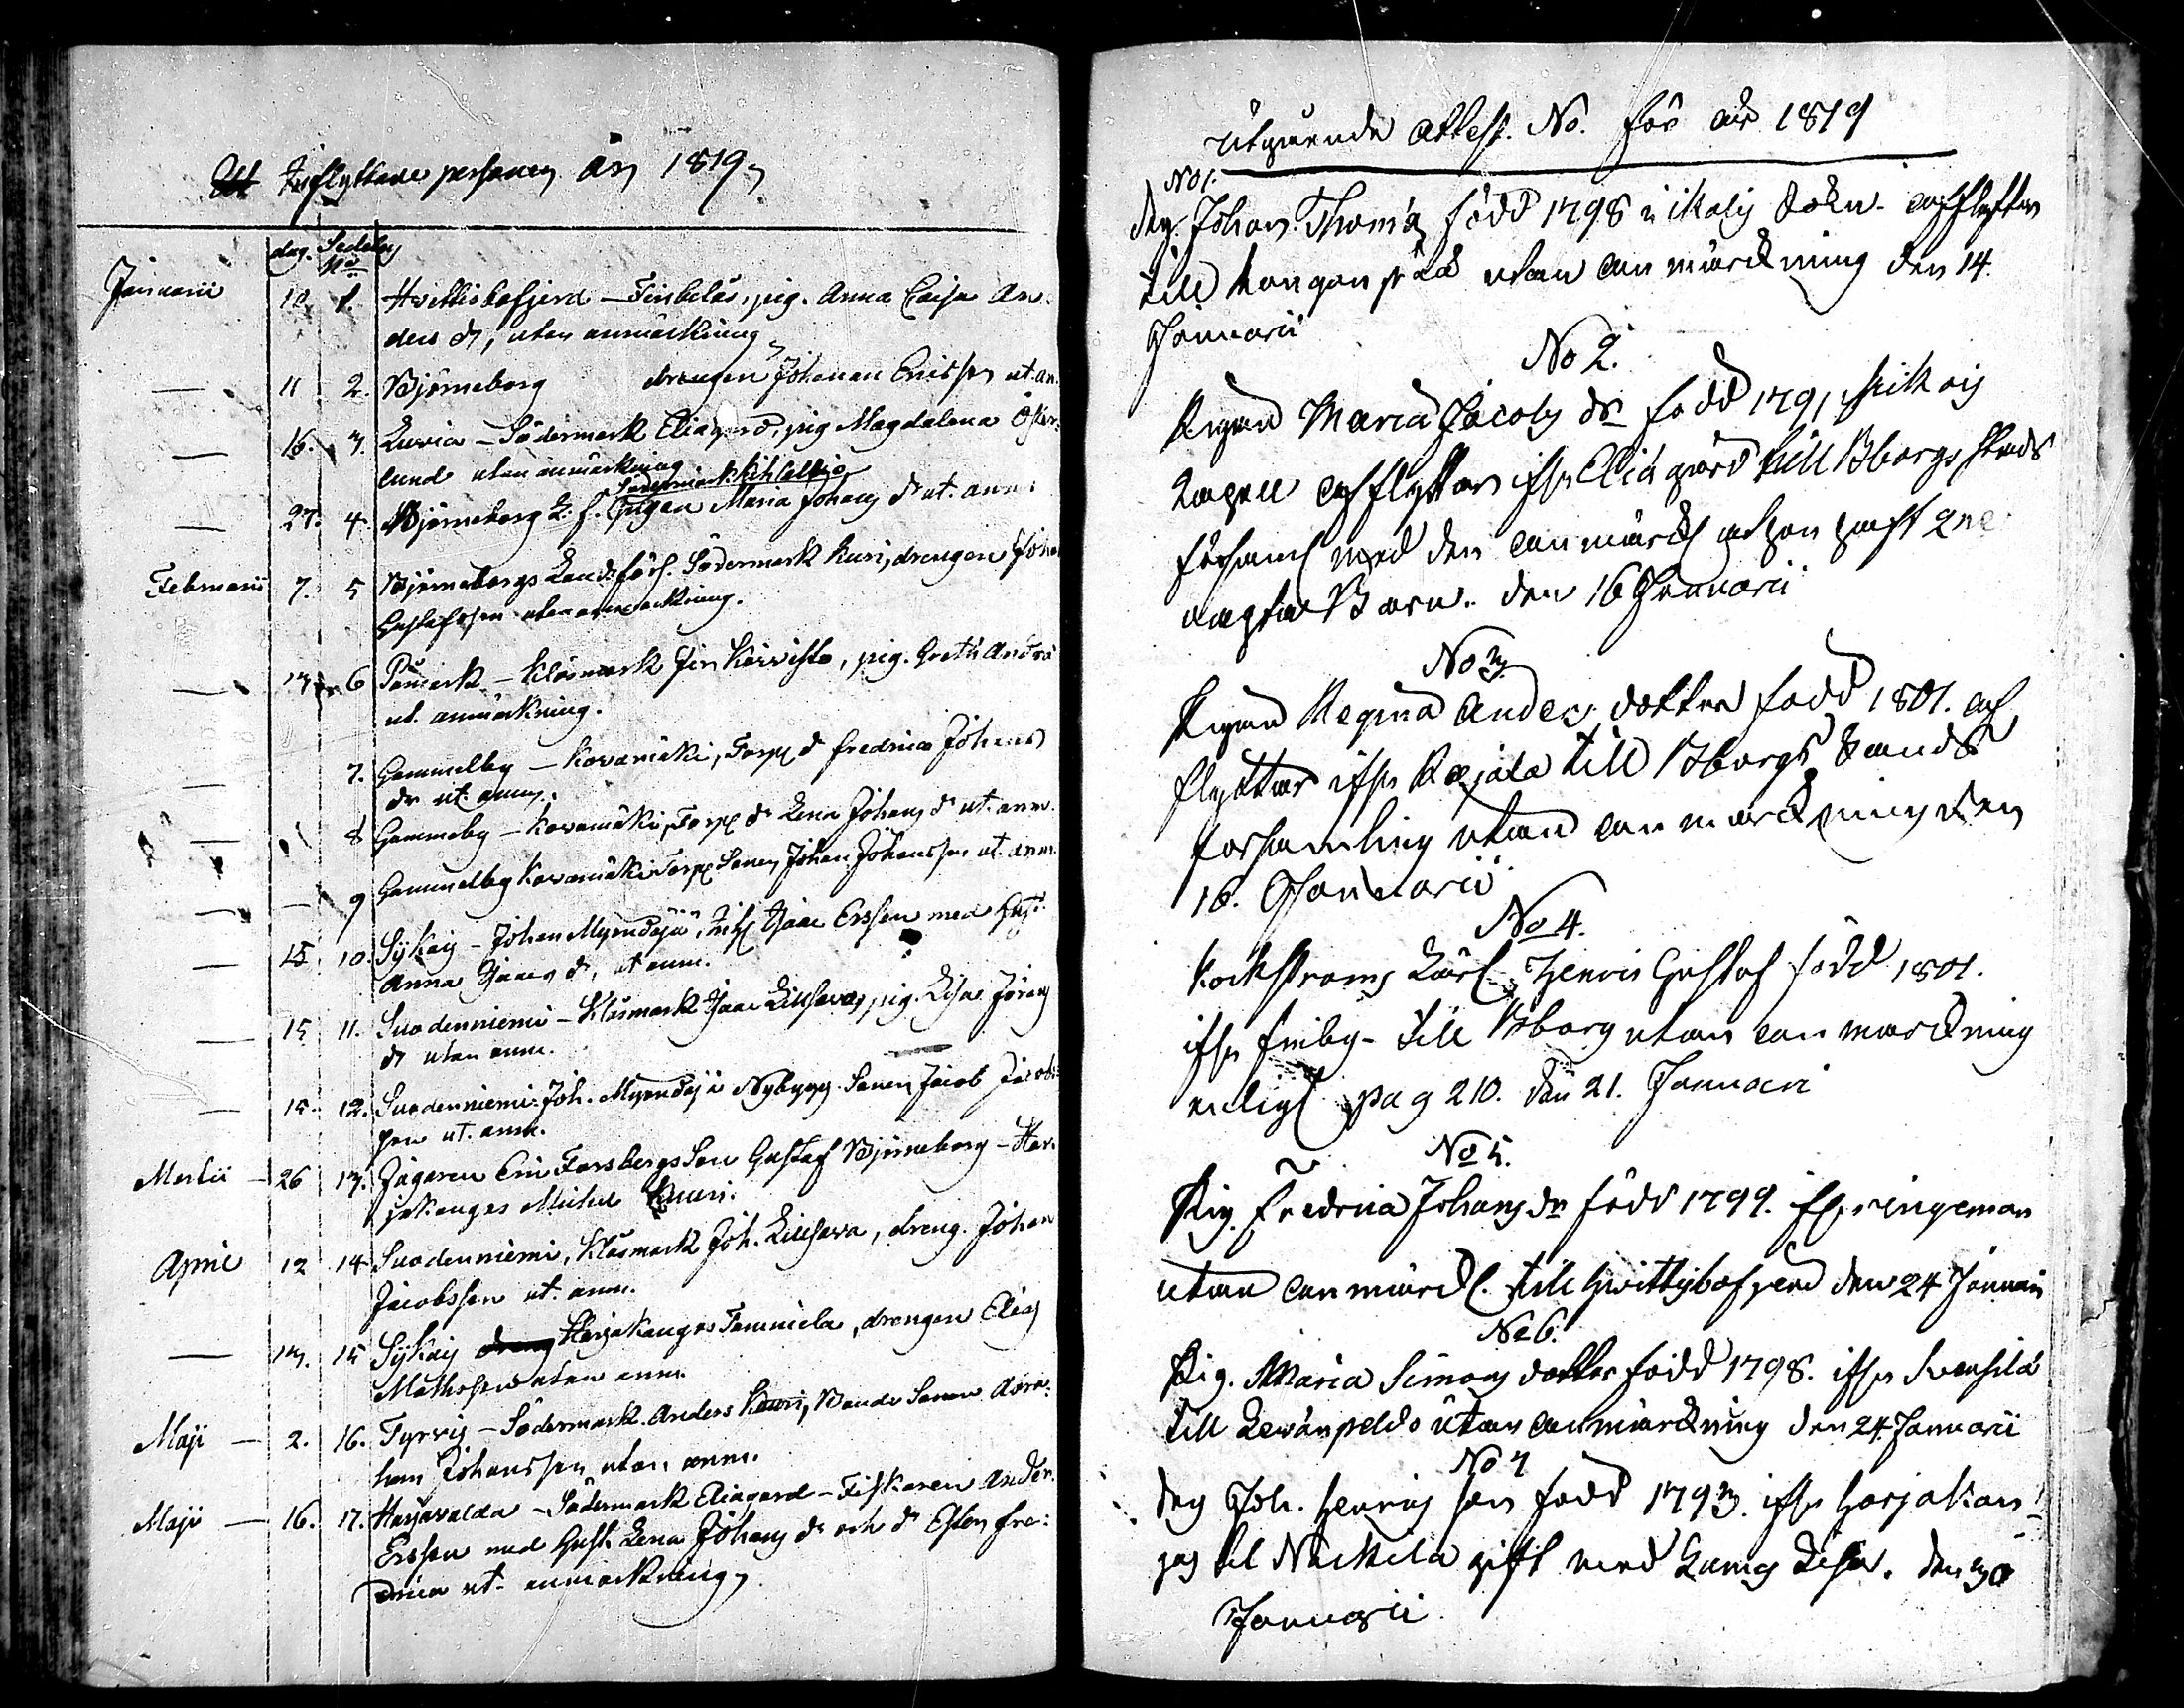 Inflyttade personer år 1819
dag. Sedelns No
Januarii 10 1. Hvittisbofjerd – Finbelås, pig. Anna Caisa An-
ders dr, utan anmärkning
— 11 2. Björneborg drengen Johanan Ericsson ut. an.
— 16. 3. Luvia – Södermark Eliagård, pig Magdalena Öster-
lund utan anmärkning.
— 27. 4. Björneborg L. f. Pigan Maria Johans dr ut. anm:
Februarii 7. 5 Björneborgs Lands förs. Södermark Kuri, drengen Johan
Gustafsson utan anmerkning.
— 13 6 Påmark – Klåsmark, pig. Greta Anders
ut. anmärkning.
— 7. Gammelby – Kovamäki, Torp. d. Fredrica Johans
dr ut. anm.
— 8 Gammelby – Kovamäki, Torp. dr Lena Johans dr ut. anm.
— 9 Gammelby Kovamäki Torp. Sonen Johan Johansson ut. anm.
— 15 10. Sykais – Johan Myrndöjä, Isaac Ersson med Hust:
Anna Isacs dr, ut anm.
— 15 11. Suodenniemi – Klåsmark Isaac Lillsava, pig. Lisa Jörans
dr utan anm.
— 15. 12. Suodenniemi. Joh. Myrndöjä Nybygg. Sonen Jacob Jacobs-
son ut. anm.
Martii – 26 13. Jägaren Eric Forsbergs Son Gustaf Björneborg – Har-
jakangas Michel Kuuri.
April 12 14 Suodenniemi, Klåsmark Joh. Lillsava, dreng. Johan
Jacobsson ut. anm.
— 13. 15 Sykais dreng Harjakangas Tommila, drengen Elias
Mathsson utan anm.
Maji — 2. 16. Tyrvis – Södermark Anders Kuuri, Bonde Sonen Abra-
ham Johansson utan anm.
Maji — 16. 17. Harjavalda – Södermark Eliagård – Fiskaren Anders
Ersson med Hust. Lena Johans dr och dr Ester Fre-
drica ut. anmärkning
Utgående attest. No. för år 1819
No 1.
drg. Johan Thoms. född 1798 i ikalis Sokn. afflyttar
till utan anmärckning den 14.
Januarii
No 2.
Pigan Maria Jacobs dr född 1791,
Capell afflyttar ifrån Eliagård till Bborgs Lands
församl med den anmärck at hon haft 2ne
oägta Barn. den 16 Januarii
No 3
Pigan Regina Anders dotter född 1801. af
flyttar ifrån till Bborgs Lands
forsamling utan anmärckning den
16. Januarii
No 4.
Kockströms Henric Gustaf född 1801.
ifrån Finby till Bborg utan anmärckning
enligt pag 210. den 21. Januari
No 5.
Pig. Fredrica Johans dr född 1799. ifrån
utan anmärck. till Hvittisbofjerd den 24 Januarii
No 6.
Pig. Maria Simons dotter född 1798. ifrån Svensilä
till utan anmärckning den 24 Januarii
No 7
drg Joh. Henrics son född 1793. ifrån Harjakan-
gas till Nackila gift med Lisa. den 30
Januarii